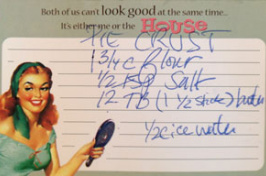 Both of us can't look good at the same time...
It's either me or the HOUSE
PIE CRUST
1 3/4 c flour
1/2 tsp Salt
12 TB (1 1/2 sticks) butter
1/2 c ice water